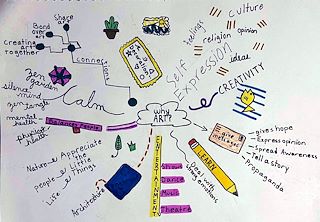 Share
Bond
over
creating art
together
connections
zen
garden
silence
mind
zen
jangle
mental
health
physical
health
Calm
Balances people
Nature
people
Life
Appreciate
the
Little
Things
Architecture
why
ART?
ENTERTAINMENT
Shows
Dance
Music
Theatre
LEARN
Deal with
emotions
give
messages
gives hope
Express opinion
Spread Awareness
Tell a story
Propaganda
Self
Expression
feelings
religion
culture
opinion
ideas
CREATIVITY